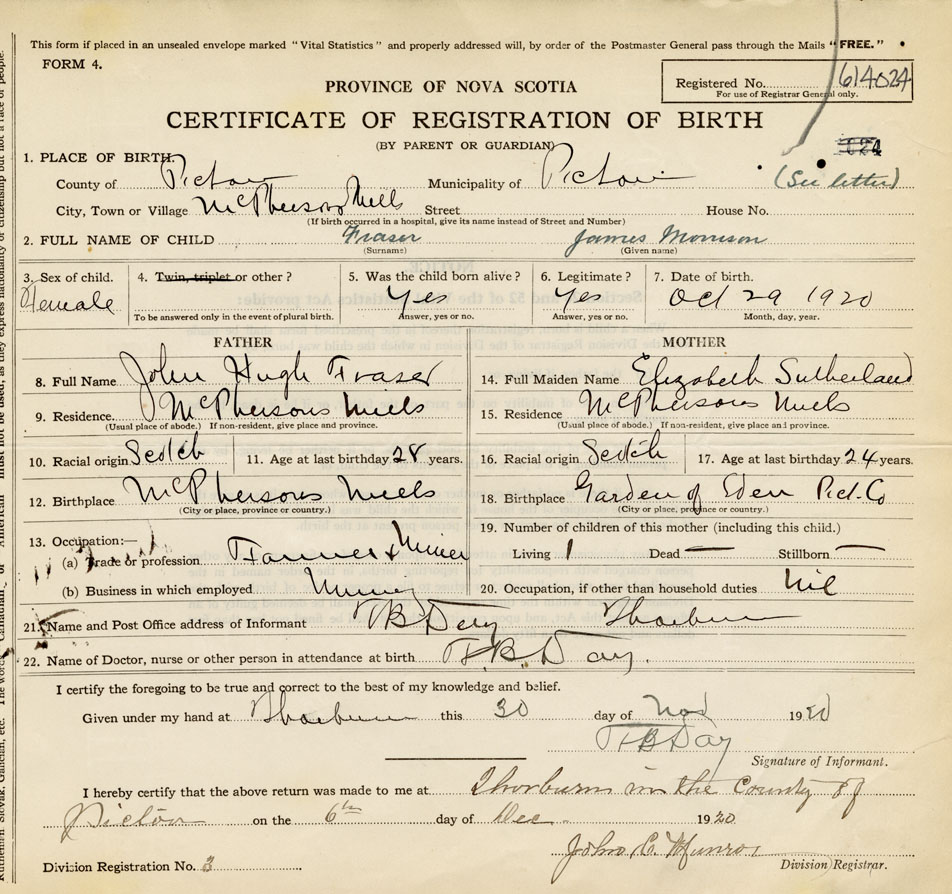 This form if placed in an unsealed envelope marked "Vital Statistics" and properly addressed will, by order of the Postmaster General pass through the Mails "FREE."
FORM 4.
Registered No. 614024
For use of Registrar General only.
PROVINCE OF NOVA SCOTIA
CERTIFICATE OF REGISTRATION OF BIRTH
(BY PARENT OR GUARDIAN)
1. PLACE OF BIRTH
County of Pictou Municipality of Pictou (See letter)
City, Town or Village McPhersons Mills Street House No.
(If birth occurred in a hospital, give its name instead of Street and Number)
2. FULL NAME OF CHILD Fraser James Morrison
(Surname) (Given name)
3. Sex of child. 4. Twin, triplet or other? 5. Was the child born alive? 6. Legitimate? 7. Date of birth.
Female Yes Yes Oct 29 1920
To be answered only in the event of plural birth. Answer, yes or no. Answer, yes or no. Month, day, year.
FATHER MOTHER
8. Full Name John Hugh Fraser 14. Full Maiden Name Elizabeth Sutherland
9. Residence. McPhersons Mills 15. Residence McPhersons Mills
(Usual place of abode.) If non-resident, give place and province. (Usual place of abode.) If non-resident, give place and province.
10. Racial origin Scotch 11. Age at last birthday 28 years. 16. Racial origin Scotch 17. Age at last birthday 24 years.
12. Birthplace McPhersons Mills 18. Birthplace Garden of Eden Pict. Co
(City or place, province or country.) (City or place, province or country.)
13. Occupation:— 19. Number of children of this mother (including this child.)
(a) Trade or profession Farmer & Miner Living 1 Dead — Stillborn —
(b) Business in which employed 20. Occupation, if other than household duties Nil
21. Name and Post Office address of Informant Day Thorburn
22. Name of Doctor, nurse or other person in attendance at birth Day.
I certify the foregoing to be true and correct to the best of my knowledge and belief.
Given under my hand at Thorburn this 30 day of Nov 1920
Day
Signature of Informant.
I hereby certify that the above return was made to me at Thorburn in the County of
Pictou on the 6th day of Dec. 1920
John C. Munro
Division Registration No. 3 Division Registrar.